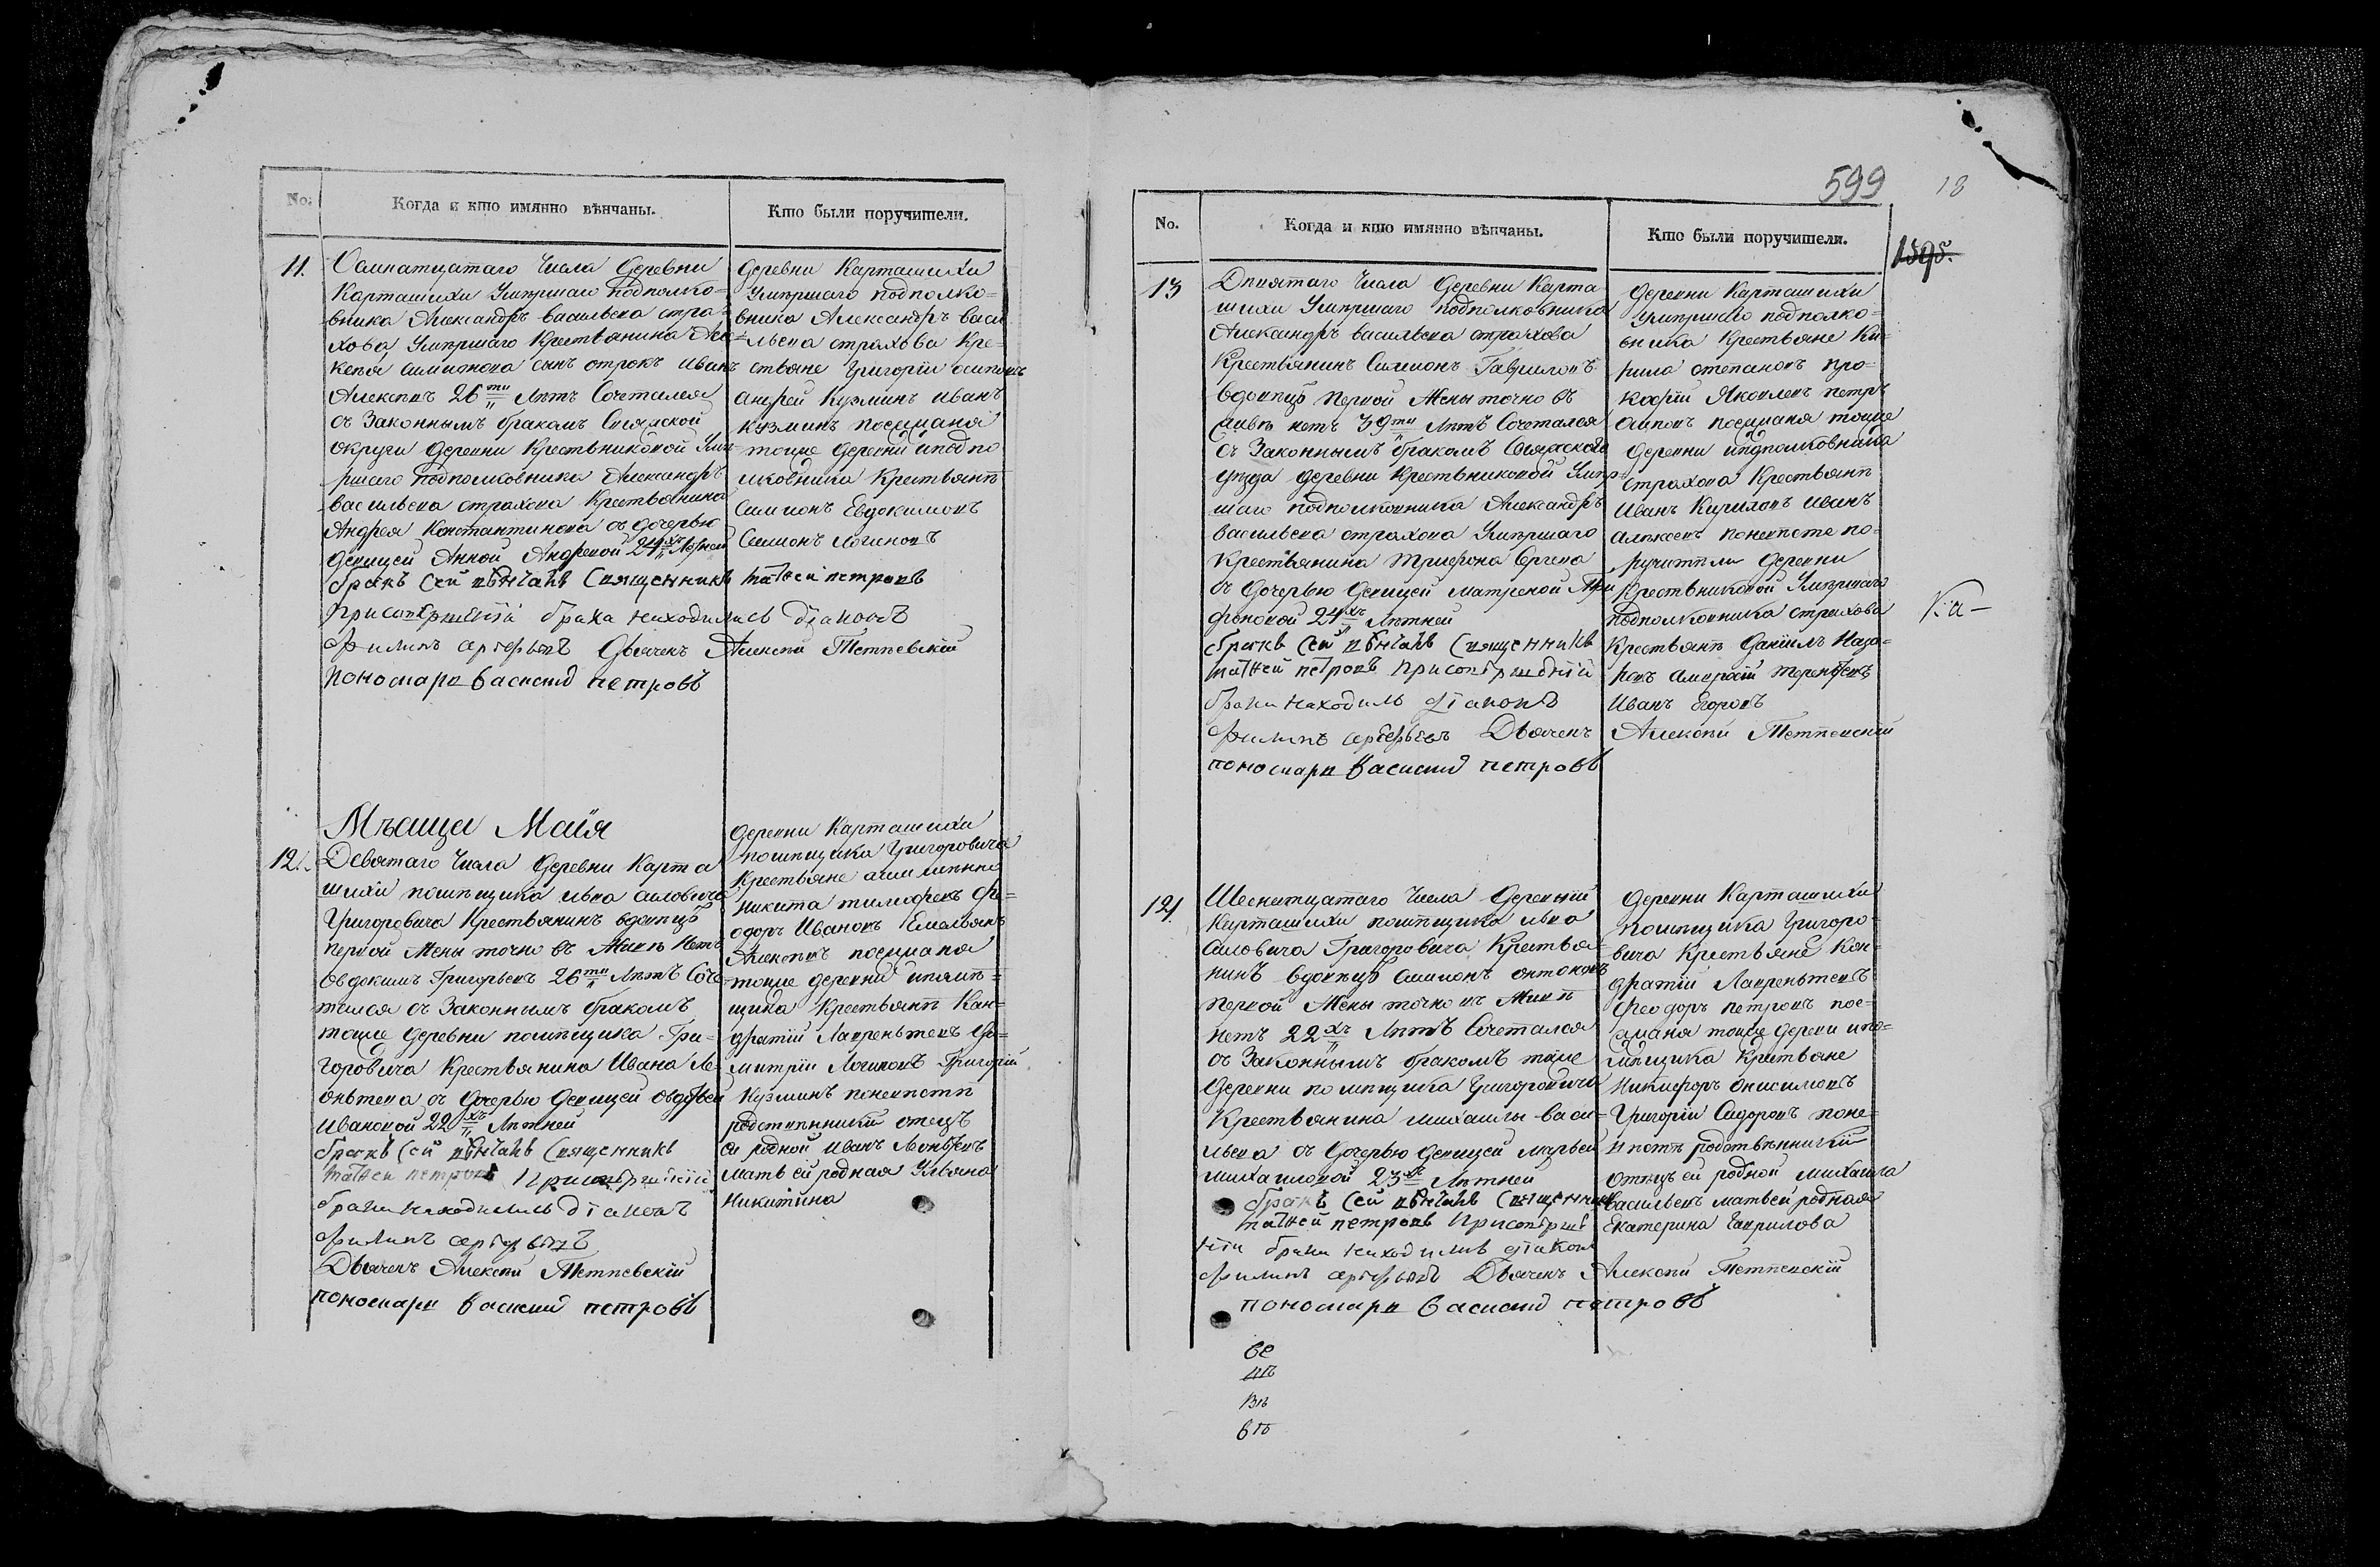 No.
Когда и кто имянно вѣнчаны.
Кто были поручишели.
11.
Осмнатцатаго Числа Деревни
Карташихи Умершаго Подполко-
вника Александръ васильева стра-
хова Умершаго Крестьянина Але-
кспя симионова сынъ отрокъ иванъ
Алексевъ 26ти Лѣтъ Сочетался
съ Законнымъ бракомъ Свияжской
округи Деревни Крестьниковой Уме-
ршаго подполковника Александръ
васильева страхова Крестьянина
Андрея Константинова съ дочерью
Девицей Анной Андревой 24хъ Летней
бракъ сей вѣнчалъ священникъ матвей петровъ
присовершеніи брака находились діаконъ
филипъ арефьевъ Дьячекъ Алексѣй Тетпевскій
пономарь василий петровъ
деревни Карташихи
Умершаго подполко=
вника Александръ васи
=льева страхова Кре=
стьяне Григорій осиповъ
андрей Кузминъ иванъ
кузминъ поседмана
тоие деревни иподпо
лковника Крестьянъ
Симионъ Евдокимовъ
Семионъ Логиновъ
Мѣсяца Майя
12.
Девятаго Числа Деревни Карта
шихи помѣщика льва силовича
Григоровича Крестьянинъ вдовецъ
первой Жены точно въ Живе Нетъ
овдокимъ Григорьевъ 26ти Лѣтъ Соче
тался съ Законнымъ бракомъ
тоие Деревни помѣщика Гри-
горовича Крестьянина Ивана Ле-
онтьева съ Дочерью Девицей овдотьей
Ивановой 22хъ Лѣтней
бракъ сей вѣнчалъ священникъ
матвей петровъ присовершеніи
брака находились діаконъ
филипъ арефьевъ
Дьячекъ Алексѣй Тетпевскій
пономарь василий петровъ
деревни Карташихи
помѣщика Григоровича
Крестьяне
Никита тимофевъ фе=
одоръ Ивановъ Емельянъ
Алексевъ поседмана
=тоие деревни ипомѣ=
щика Крестьянъ Кон=
дратій Лаврентьевъ Дми=
митрій Логиновъ Григорій
Кузминъ поневесте
родственники отецъ
ей родной иванъ Леонтьевъ
мать ей родная Ульяна
Никитина
599
18
1595.
No.
Когда и кто имянно вѣнчаны.
Кто были поручишели.
13
Дпятаго Числа Деревни Карта
шихи Умершаго подполковника
Александръ васильева страхова
Крестьянинъ Симионъ Гавриловъ
вдовецъ первой Жены точно въ
Живе нетъ 39ти Лѣтъ Сочетался
съ Законнымъ бракомъ Свияжскаго
уезда деревни Крестьниковой Умер=
шаго подполковника Александръ
васильева страхова Умершаго
Крестьянина Трифона Сергева
съ Дочерью Девицей матреной Три
фоновой 24хъ Лѣтней
бракъ сей вѣнчалъ священникъ
матвей петровъ присовершеніи
брака находилъ діаконъ
филипъ арефьевъ Дьячекъ Алексѣй Тетпевскій
пономарь василий петровъ
деревни Карташихи
Умершаго подполко=
вника Крестьяне Ки=
рила степановъ про=
кофій Яковлевъ петръ
осиповъ поседмана тоие
деревни иподполковника
страхова Крестьянъ
Иванъ Кириловъ Иванъ
алексевъ поневесте по=
ручители Деревни
Крестьниковой Умершаго
подполковника страхова
Крестьянъ Данійлъ Наза=
ровъ амвросій терентьевъ
Иванъ Егоровъ
Ка-
14
Шеснатцатаго Числа Деревни
Карташихи помѣщика льва
Силовича Григоровича Крестья=
нинъ вдовецъ симионъ антоновъ
первой Жены точно въ Живе
нетъ 22хъ Лѣтъ Сочетался
съ Законнымъ бракомъ тоие
Деревни помѣщика Григоровича
Крестьянина михайлы васи=
льева съ Дочерью девицей марьей
михайловой 23хъ Лѣтней
бракъ сей вѣнчалъ священникъ
матвей петровъ присоверше
ніи брака находились діаконъ
филипъ арефьевъ Дьячекъ Алексѣй Тетпевскій
пономарь василий петровъ
Деревни Карташихи
помѣщика Григоро=
вича Крестьяне Кон=
дратій Лаврентьевъ
феодоръ петровъ посе=
дмана тоие дереви ипо=
мѣщика Крестьяне
Никифоръ онисимовъ
Григорій Сидоровъ поне=
весте родственники
отецъ ей родной михайла
васильевъ мать ей родная
Екатерина Гаврилова